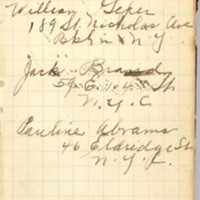 William Geper
189 St. Nicholas Ave
Bklyn N.Y.
Jack
St
N.Y.C
Pauline Abrams
46 Eldredge St
N.Y.C.